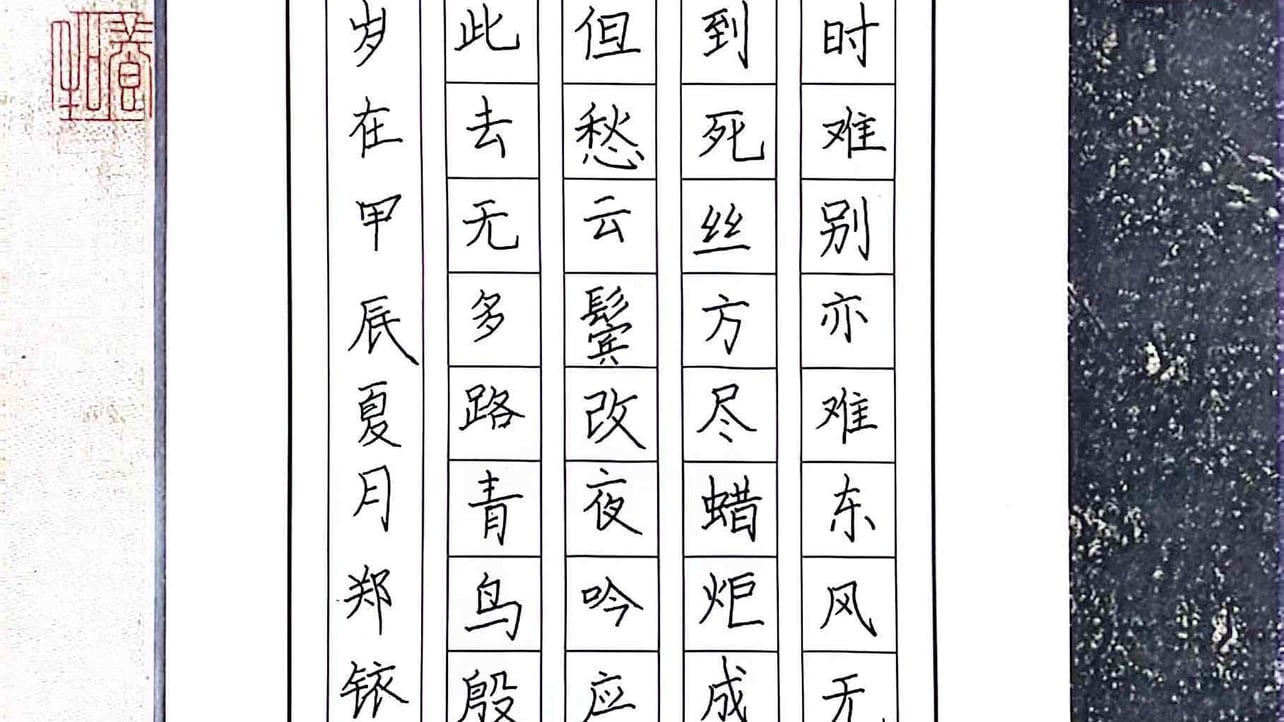 时难别亦难东风无
到死丝方尽蜡炬成
但愁云鬓改夜吟应
此去无多路青鸟殷
岁在甲辰夏月郑铱